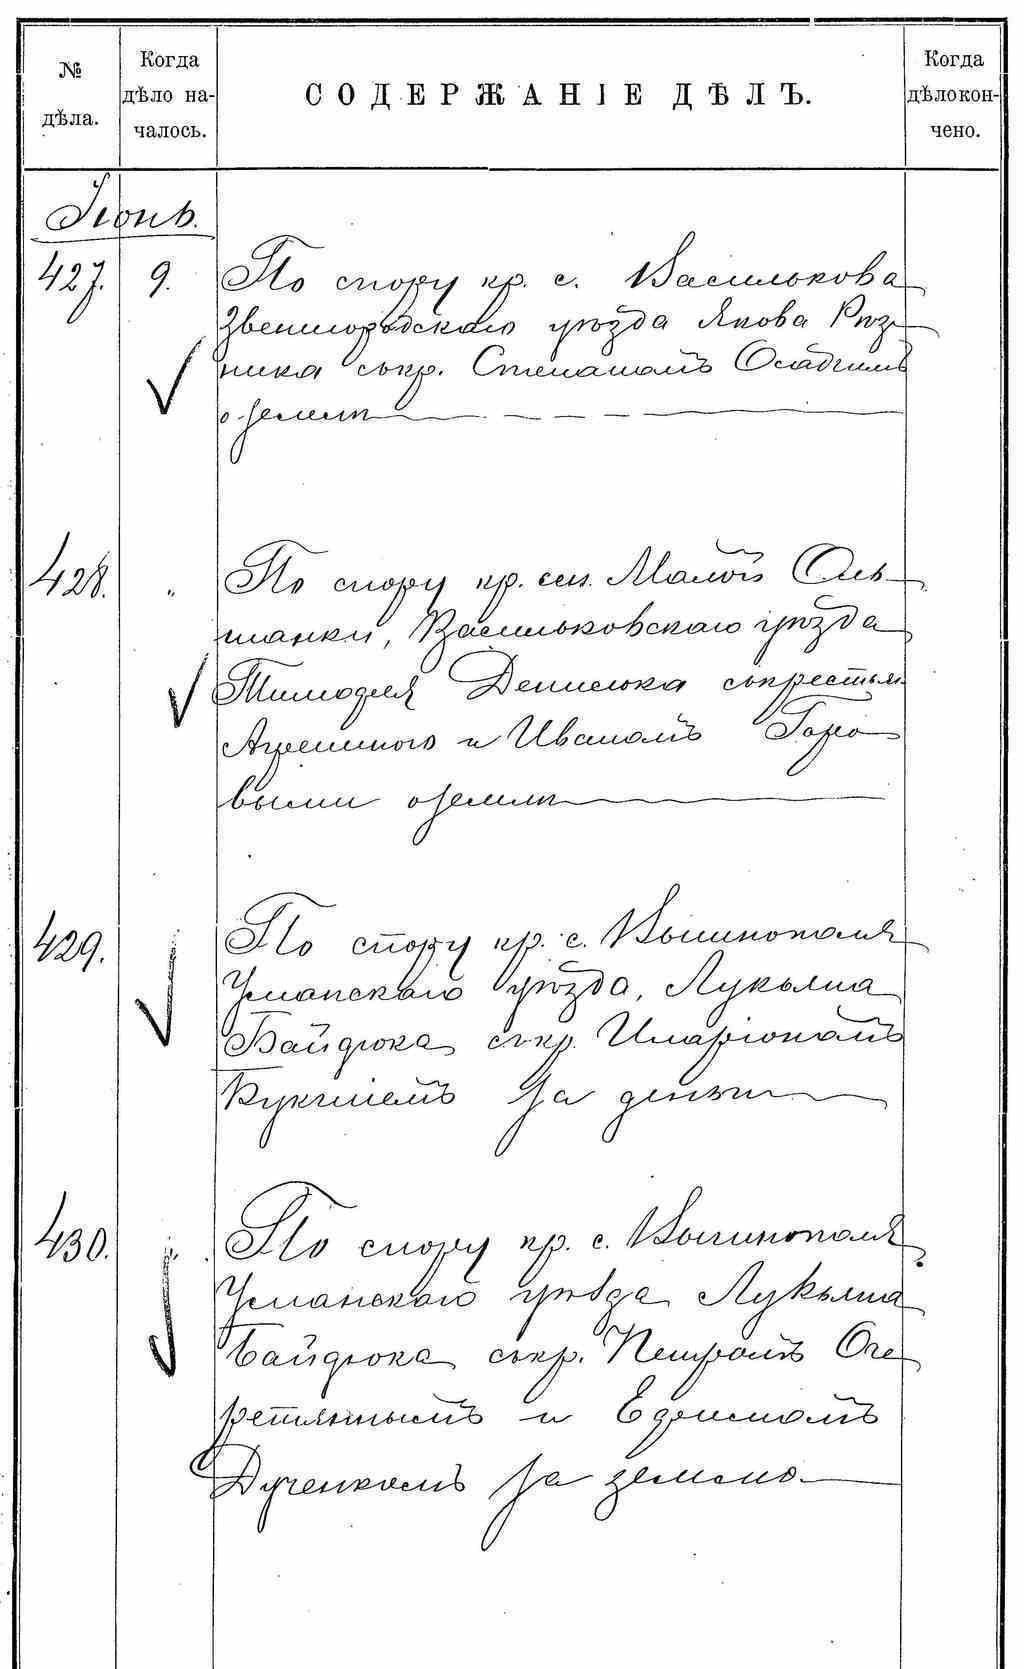 № дѣла.
Когда дѣло на-чалось.
СОДЕРЖАНІЕ ДѢЛЪ.
Когда дѣло кон-чено.
Іюнь.
427. 9. По спору кр. с. Василькова
Звенигородскаго уѣзда Якова Рѣз-
ника съ кр. Степаномъ Осадчимъ
о землѣ
428. " По спору кр. сел. Малой Оль-
шанки, Васильковскаго уѣзда
Тимофея Денисюка съ крестьян.
и Иваномъ Горо
выми о землѣ
429. По спору кр. с. Вышнополя
Уманскаго уѣзда, Лукьяна
Байдюка съ кр. Иларіономъ
за деньги
430. " По спору кр. с. Вышнополя
Уманскаго уѣзда Лукьяна
Байдюка съ кр. Петромъ Оче
ретянымъ и Ефимомъ
Дученкомъ за землю.